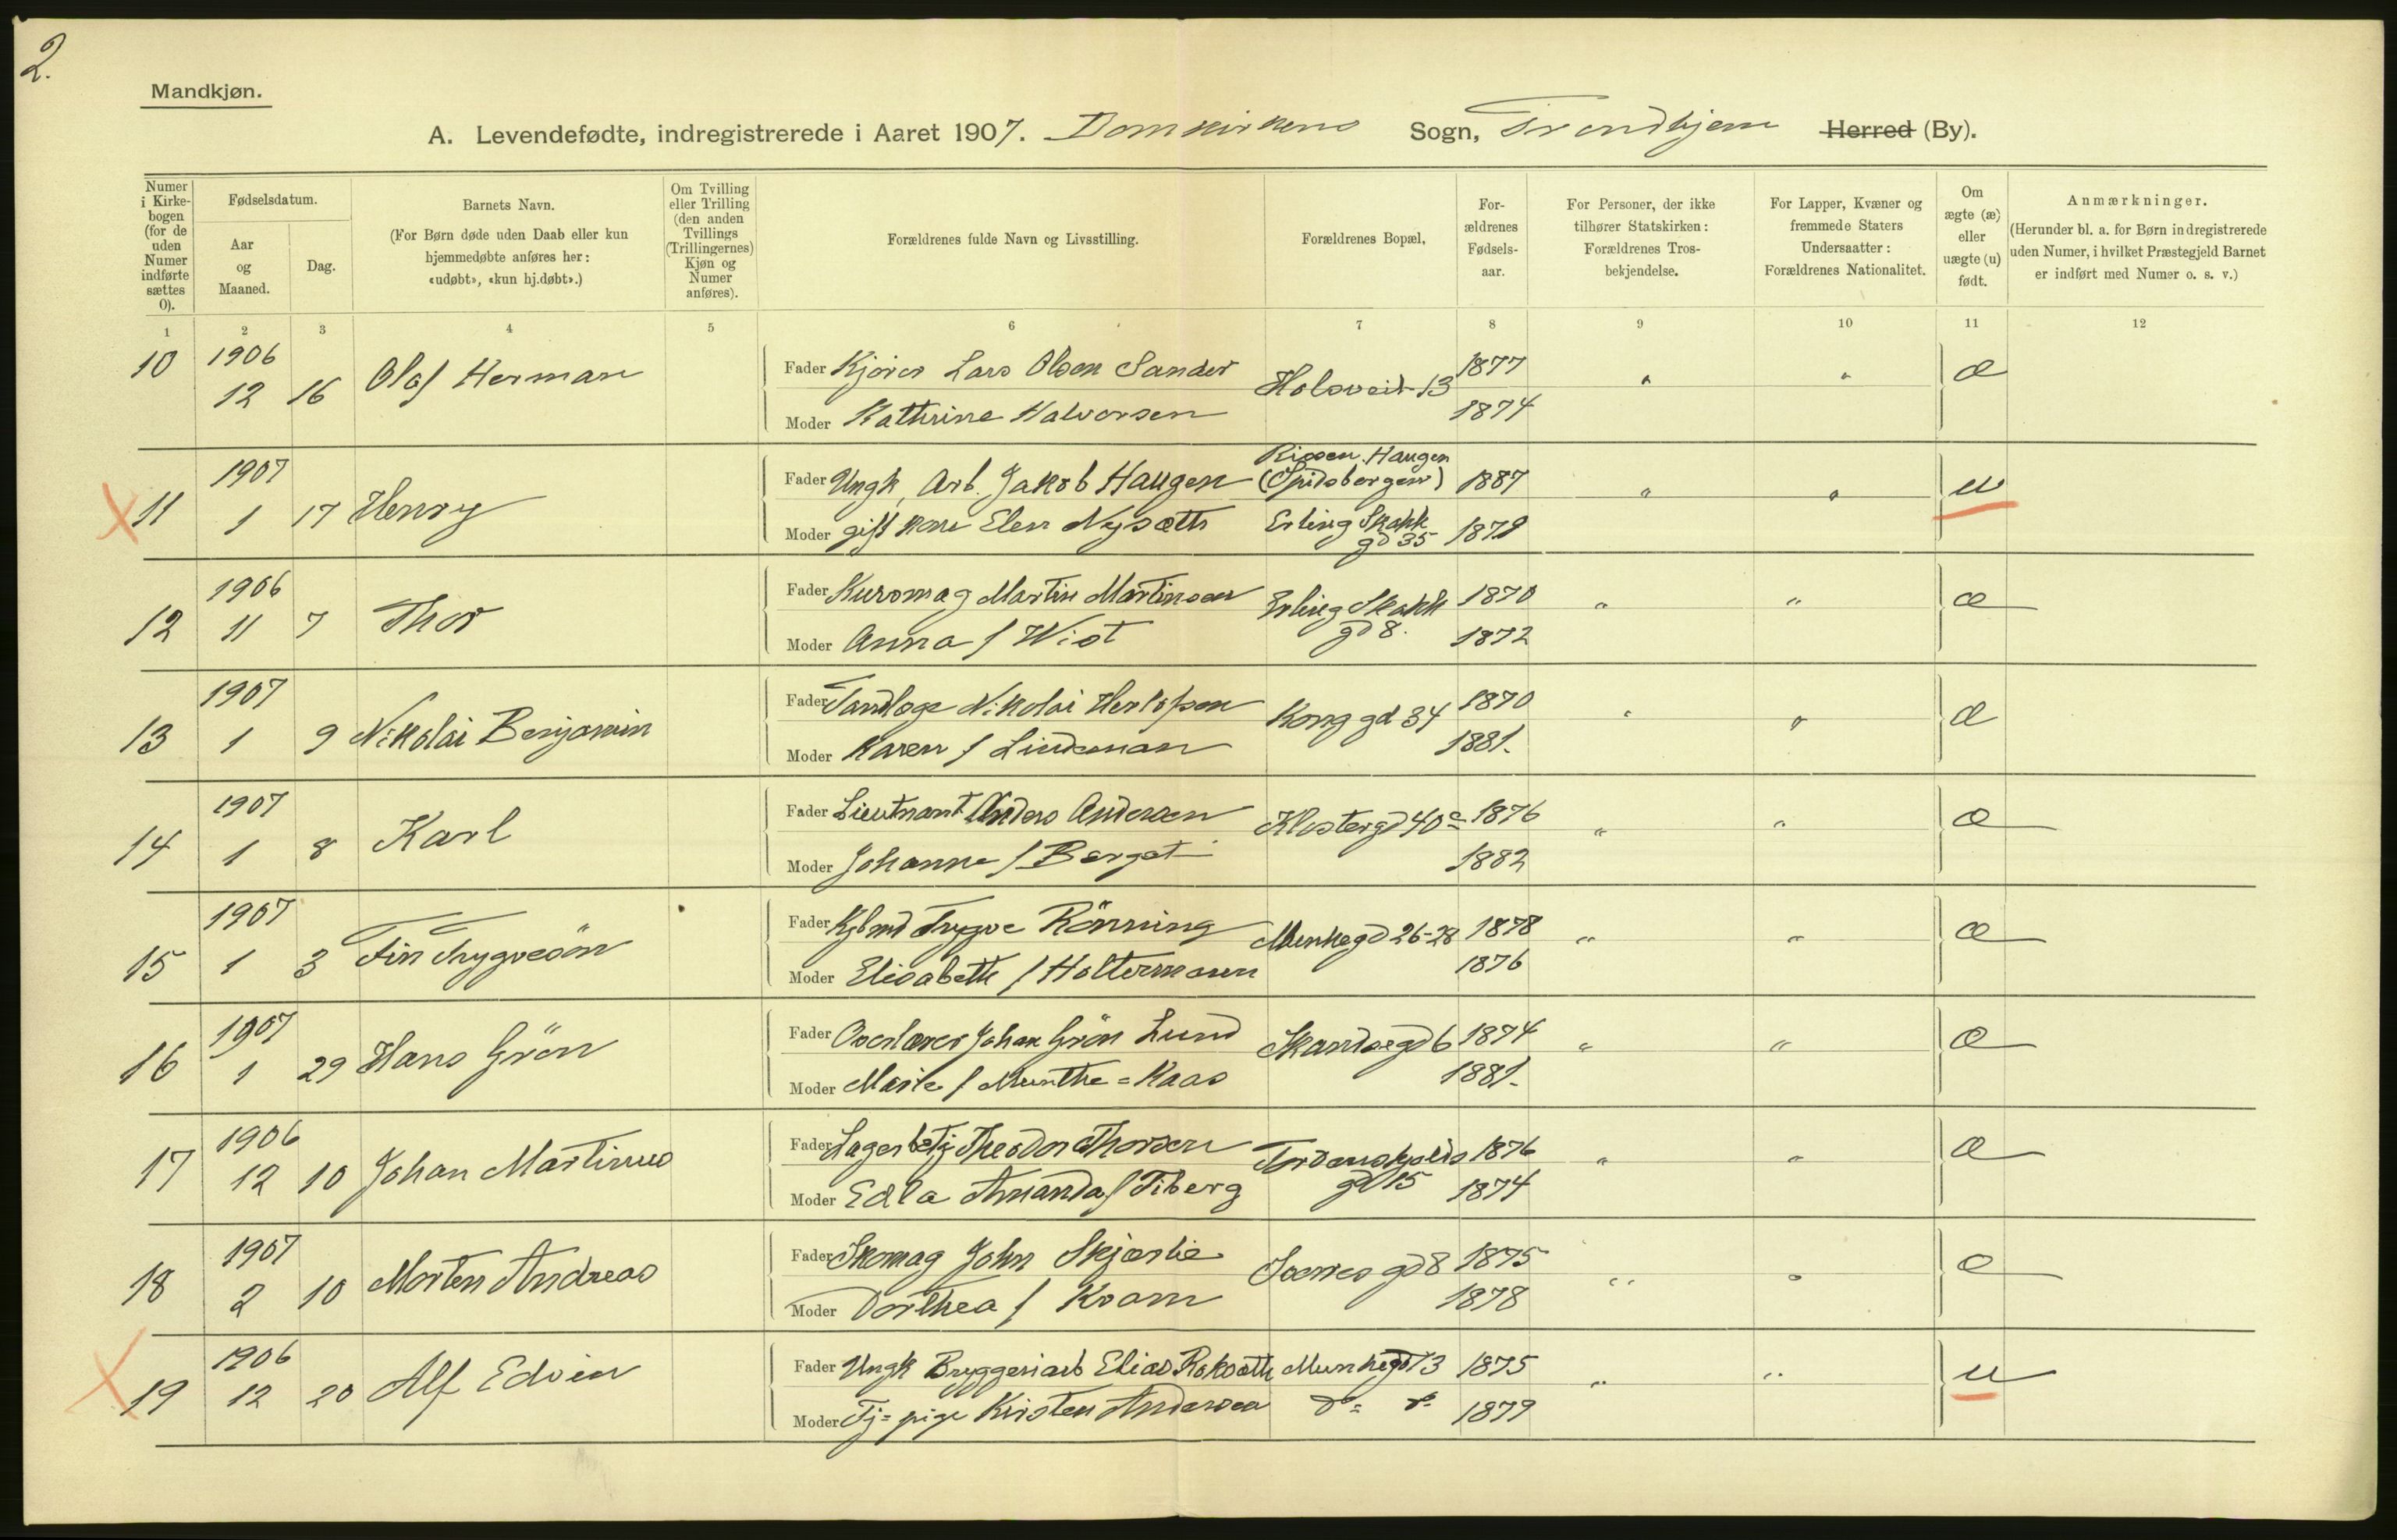 2.
Mandkjøn.
A. Levendefødte, indregistrerede i Aaret 1907. Domkirkens Sogn, Trondhjem Herred (By).
Numer i Kirkebogen (for de uden Numer indførte sættes 0).
Fødselsdatum.
Aar og Maaned.
Dag.
Barnets Navn.
(For Børn døde uden Daab eller kun hjemmedøbte anføres her: «udøbt», «kun hj.døbt».)
Om Tvilling eller Trilling (den anden Tvillings (Trillingernes) Kjøn og Numer anføres).
Forældrenes fulde Navn og Livsstilling.
Forældrenes Bopæl,
Forældrenes Fødselsaar.
For Personer, der ikke tilhører Statskirken: Forældrenes Trosbekjendelse.
For Lapper, Kvæner og fremmede Staters Undersaatter: Forældrenes Nationalitet.
Om ægte (æ) eller uægte (u) født.
Anmærkninger.
(Herunder bl. a. for Børn indregistrerede uden Numer, i hvilket Præstegjeld Barnet er indført med Numer o. s. v.)
1 2 3 4 5 6 7 8 9 10 11 12
10 1906 12 16 Olaf Herman
Fader Kjører Lars Olsen Sander Holsveit 13 1877 " " æ
Moder Kathrine Halvorsen 1874
X 11 1907 1 17 Henry
Fader Ungk, Arb. Jakob Haugen Rissen. Haugen (Spidsbergen) 1887 " " u
Moder gift kone Elen Nysæth Erling Skakk gd 35 1879
12 1906 11 7 Thor
Fader Kurvmag Martin Martinsen Erling Skakk gd 8. 1870 " " æ
Moder Anna f Wist 1872
13 1907 1 9 Nikolai Benjamin
Fader Tandlæge Nikolai Herlofsen Kong gd 34 1870 " " æ
Moder Karen f Lindeman 1881.
14 1907 1 8 Karl
Fader Lieutnant Anders Andersen Klostergd 40 c 1876 " " æ
Moder Johanne f Berget 1882
15 1907 1 3 Fin Trygvesön
Fader Kjbmd Trygve Rönning Munkegd 26-28 1878 " " æ
Moder Elisabeth f Holtermann 1876
16 1907 1 29 Hans Grön
Fader Overlærer Johan Grön Lund Skandsegd 6 1874 " " æ
Moder Marie f Munthe=Kaas 1881.
17 1906 12 10 Johan Martinus
Fader Lagerbetj Theodor Thorsen Tordenskjolds gd 15 1876 " " æ
Moder Edla Amanda f Tiberg 1874
18 1907 2 10 Morten Andreas
Fader Skomag John Skjærlie Sverres gd 8 1875 " " æ
Moder Dorthea f Kvam 1878
X 19 1906 12 20 Alf Edvin
Fader Ungk Bryggeriarb Elias Roksæth Munkegd 73 1875 " " u
Moder Tj=pige Kirsten Andersen do do 1879